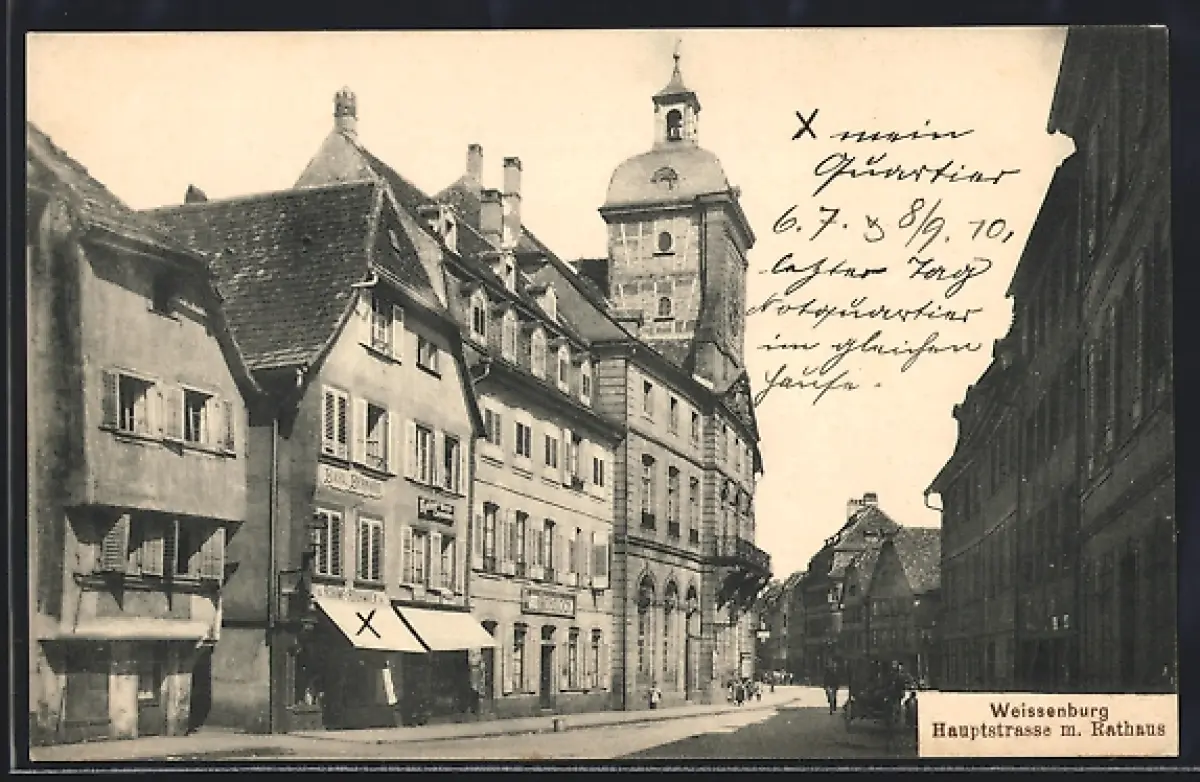 X mein
Quartier
6. 7. & 8/9. 10,
letzter Tag
Notquartier
im gleichen
Hause.
X
Weissenburg
Hauptstrasse m. Rathaus